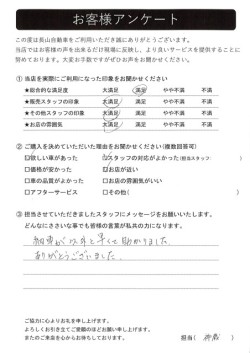 お客様アンケート
この度は長山自動車をご利用いただき誠にありがとうございます。
当店ではお客様の声を出来るだけ現場に反映し、より良いサービスを提供することに
努めております。大変お手数ですがぜひお声をお聞かせください。
① 当店を実際にご利用になった印象をお聞かせください
★総合的な満足度 大満足 満足 やや不満 不満
★販売スタッフの印象 大満足 満足 やや不満 不満
★その他スタッフの印象 大満足 満足 やや不満 不満
★お店の雰囲気 大満足 満足 やや不満 不満
② ご購入を決めていただいた理由をお聞かせください(複数回答可)
□欲しい車があった □スタッフの対応がよかった(担当スタッフ: )
□価格が安かった □お店が近い
□車の品質がよかった □お店の雰囲気がいい
□アフターサービス □その他( )
③ 担当させていただきましたスタッフにメッセージをお願いいたします。
どんなにささいな事でも皆様の言葉が私共の力になります。
納車が以外と早くて助かりました。
ありがとうございました。
ご協力に心よりお礼を申し上げます。
よろしくお引き立てご愛顧のほどお願い申し上げます。
またのご来店を心からお待ちしております。
担当( )